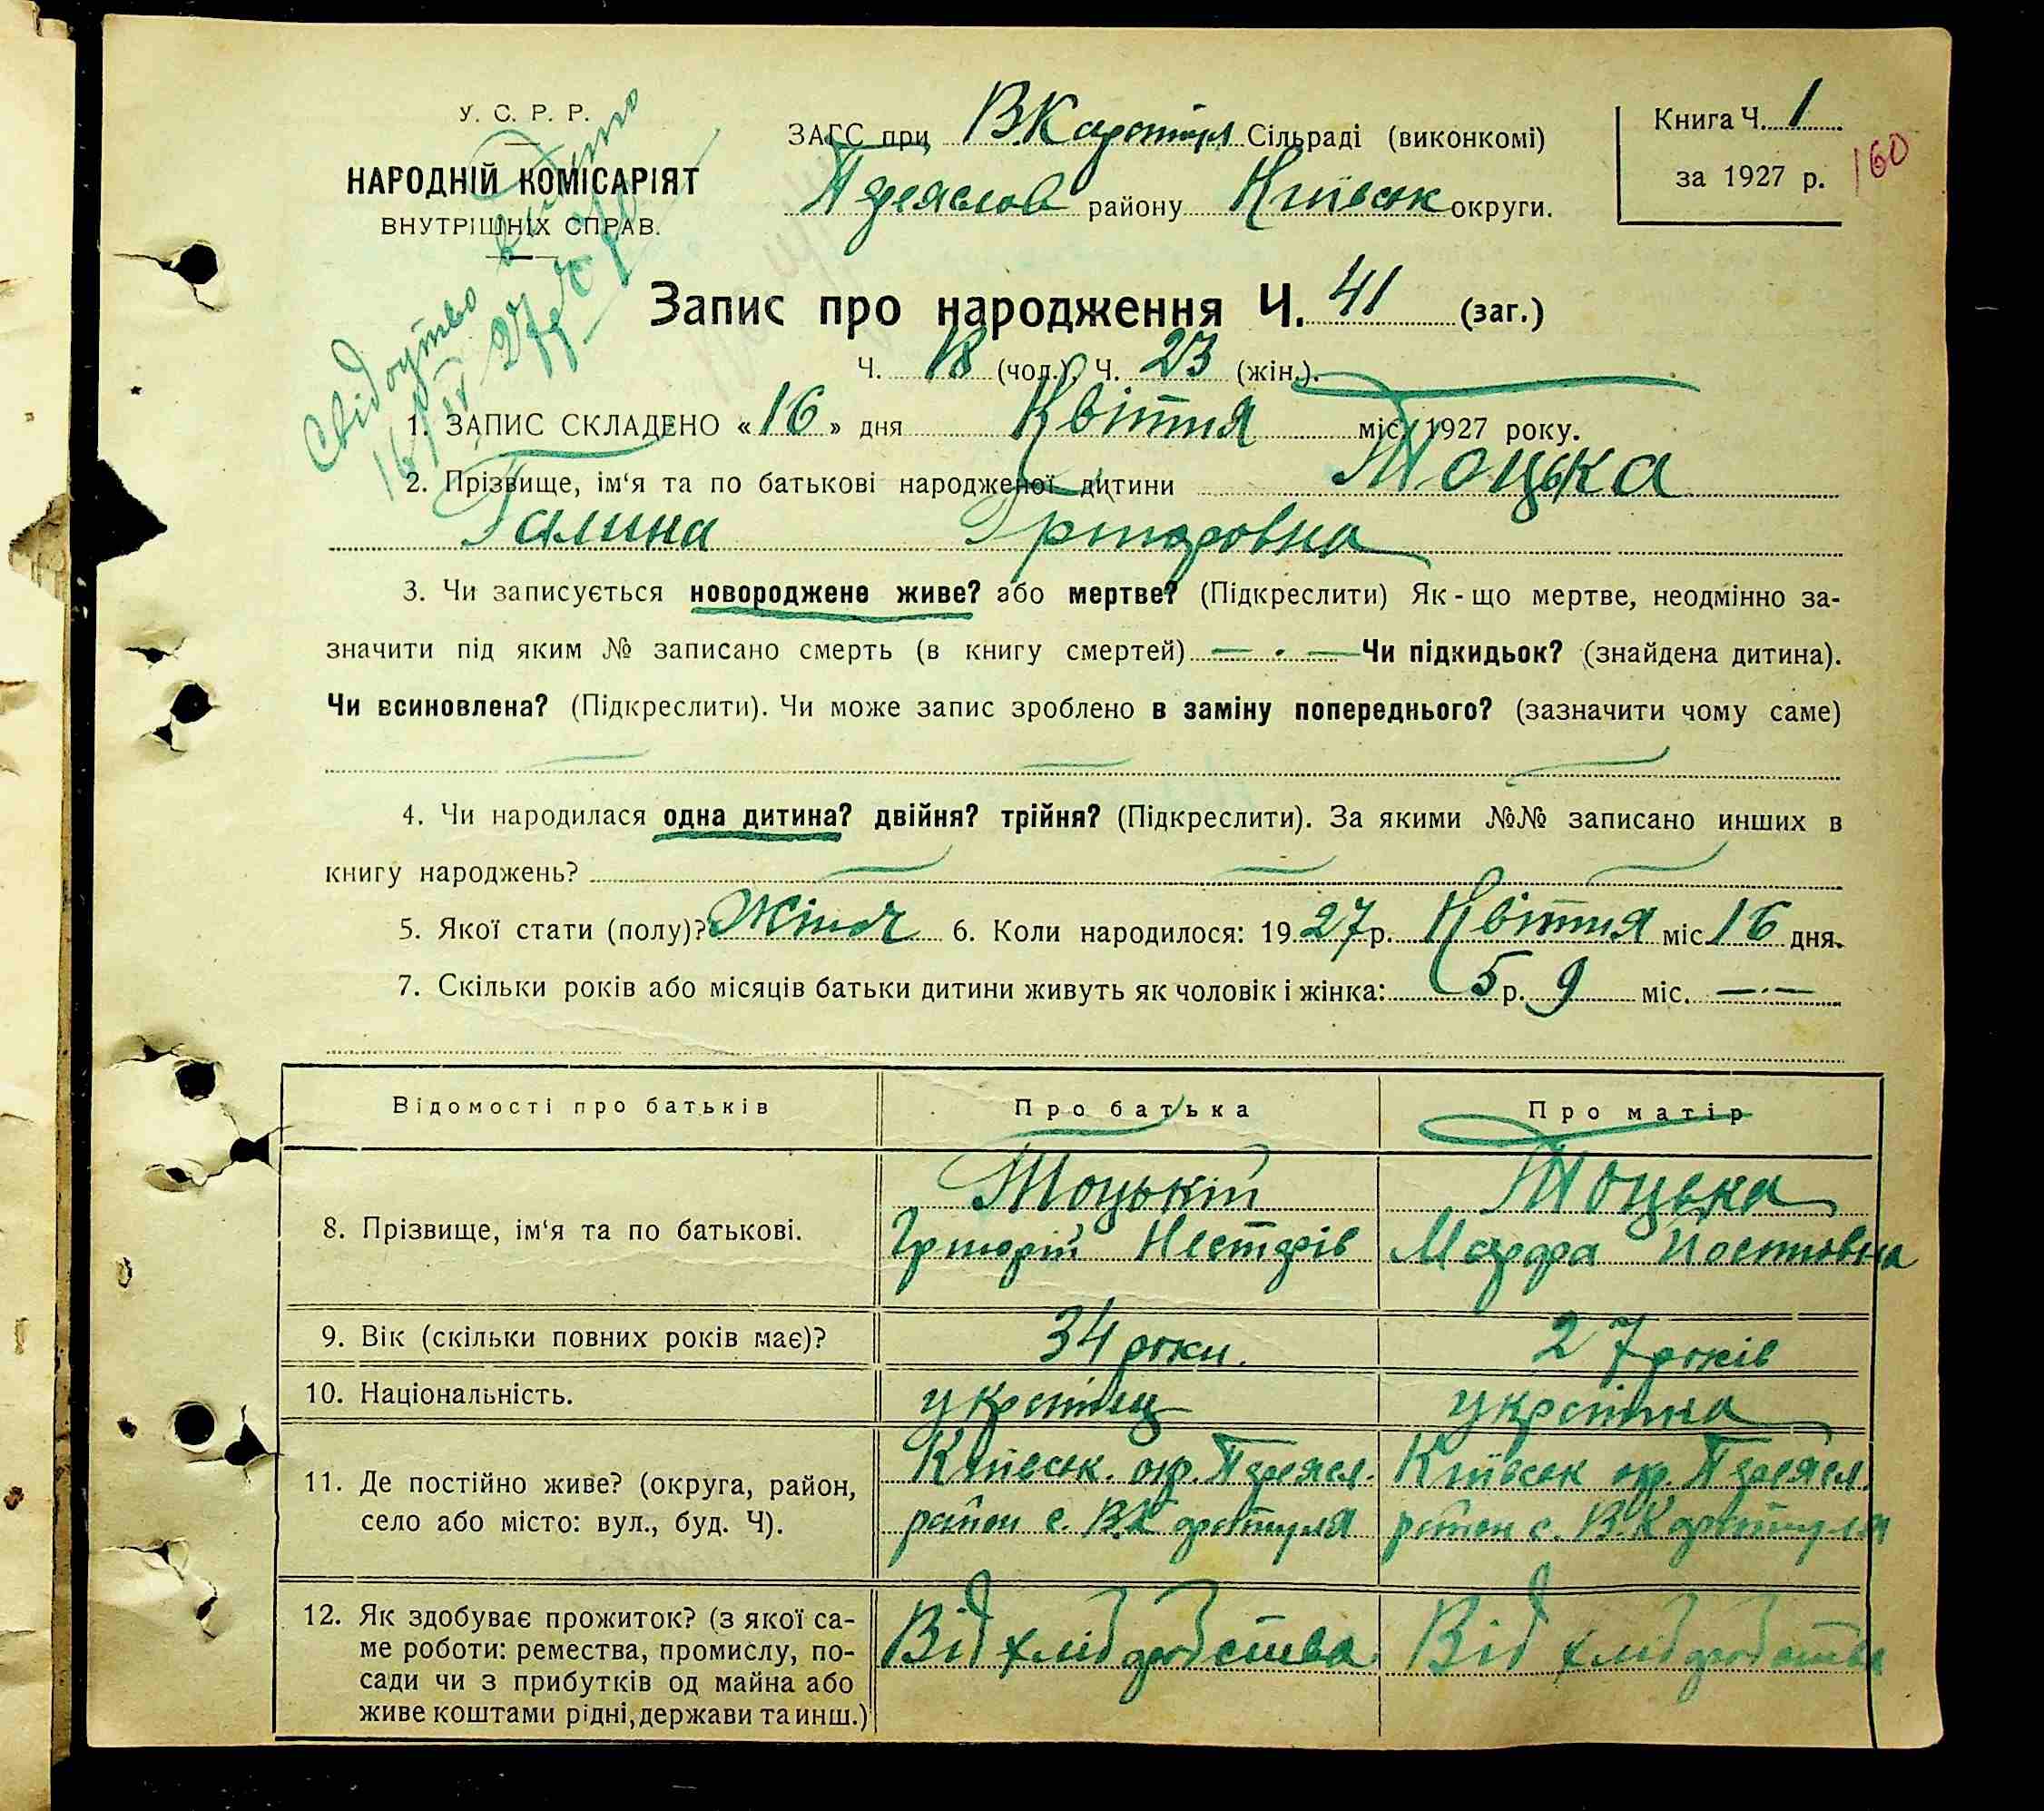 У. С. Р. Р.
НАРОДНІЙ КОМІСАРІЯТ
ВНУТРІШНІХ СПРАВ.
Свідоцтво видано
16/IV 27 р.
ЗАГС при В.Каратул Сільраді (виконкомі)
Переяслов району Київськ округи.
Книга Ч. 1
за 1927 р.
160
Запис про народження Ч. 41 (заг.)
Ч. 18 (чол.) Ч. 23 (жін.).
1. ЗАПИС СКЛАДЕНО «16» дня Квітня міс. 1927 року.
2. Прізвище, ім'я та по батькові народженої дитини Тоцька
Галина Григоровна
3. Чи записується новороджене живе? або мертве? (Підкреслити) Як-що мертве, неодмінно за-
значити під яким № записано смерть (в книгу смертей) — . — Чи підкидьок? (знайдена дитина).
Чи всиновлена? (Підкреслити). Чи може запис зроблено в заміну попереднього? (зазначити чому саме)
4. Чи народилася одна дитина? двійня? трійня? (Підкреслити). За якими №№ записано инших в
книгу народжень?
5. Якої стати (полу)? Жіноч 6. Коли народилося: 1927 р. Квітня міс. 16 дня.
7. Скільки років або місяців батьки дитини живуть як чоловік і жінка: 5 р. 9 міс. —.—
Відомості про батьків Про батька Про матір
8. Прізвище, ім'я та по батькові.
Тоцький
Григорій Нестерів
Тоцька
Марфа Костовна
9. Вік (скільки повних років має)? 34 роки. 27 років
10. Національність. українц українка
11. Де постійно живе? (округа, район,
село або місто: вул., буд. Ч).
Київськ. окр. Переясл.
район с. В.Каратуля
Київськ окр. Переясл.
район с. В.Каратуля
12. Як здобуває прожиток? (з якої са-
ме роботи: ремества, промислу, по-
сади чи з прибутків од майна або
живе коштами рідні, держави та инш.)
Від хлібробства
Від хлібробства